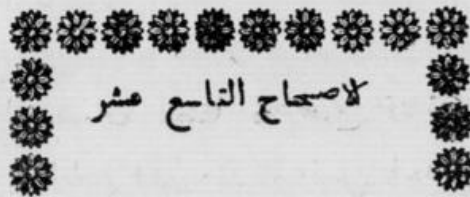 لاصحاح التاسع عشر